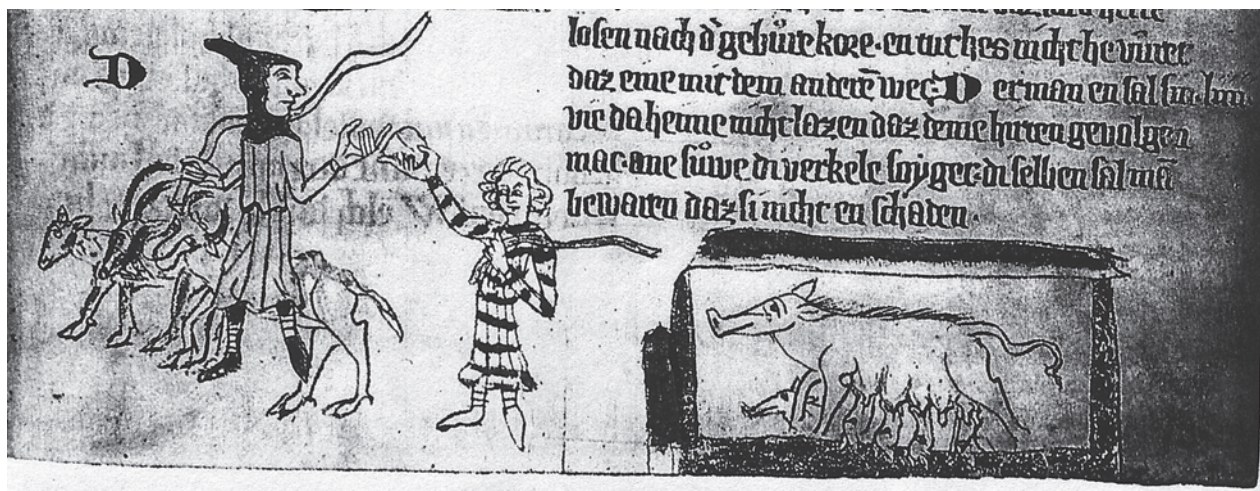 D
losen nach d' gebuͤre kore. en tut hes nicht he vūret
daz eine mit dem anderē wec. D er man en sal sin
vie da heime nicht lazen daz deme hirten gevolgen
mac. ane suͤwe di verkele soyget. di selben sal mā
bewaren daz si nicht en schaden.